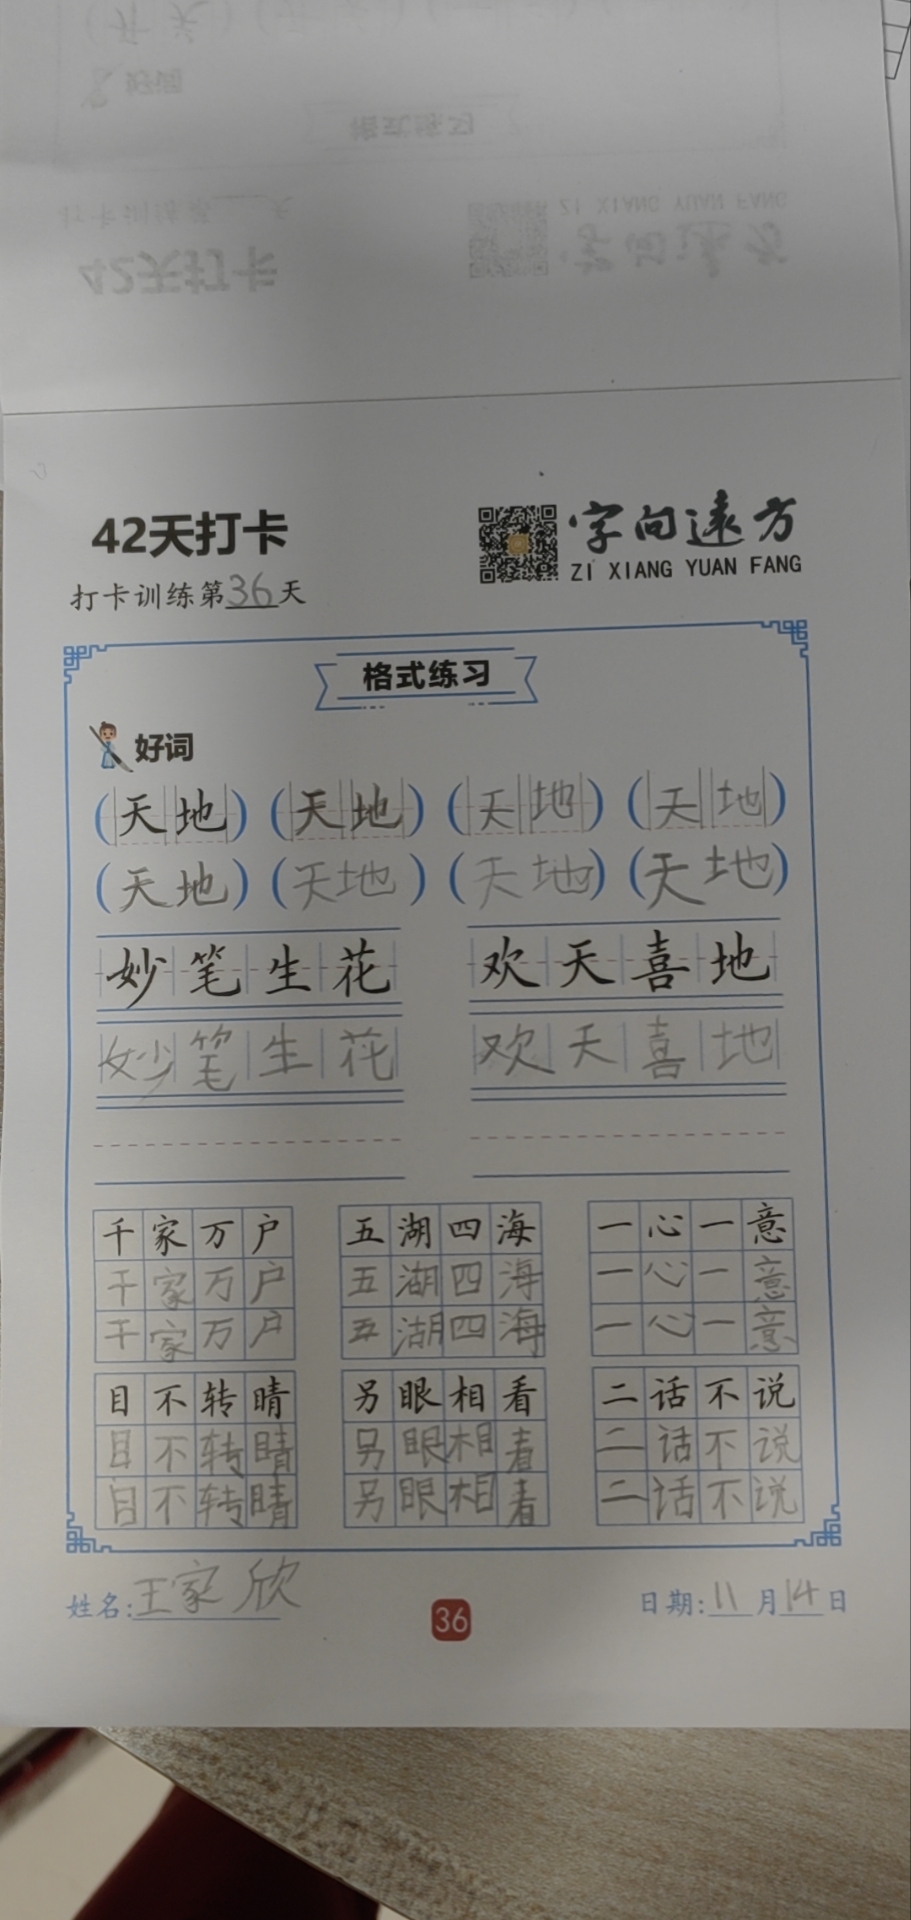 42天打卡
字向远方
ZI XIANG YUAN FANG
打卡训练第36天
格式练习
好词
(天地) (天地) (天地) (天地)
(天地) (天地) (天地) (天地)
妙笔生花 欢天喜地
妙笔生花 欢天喜地
千家万户 五湖四海 一心一意
千家万户 五湖四海 一心一意
千家万户 五湖四海 一心一意
目不转睛 另眼相看 二话不说
目不转睛 另眼相看 二话不说
目不转睛 另眼相看 二话不说
姓名:王家欣 36 日期:11月14日